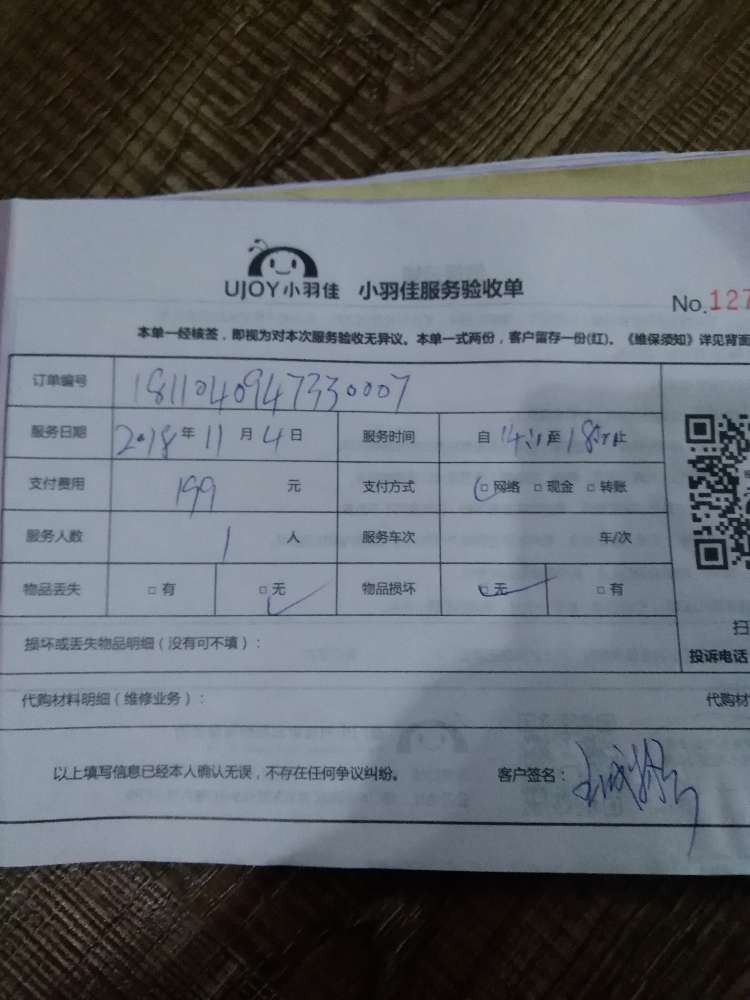 UJOY小羽佳 小羽佳服务验收单
No.127
本单一经核签，即视为对本次服务验收无异议。本单一式两份，客户留存一份(红)。《维保须知》详见背面
订单编号 1811040947330007
服务日期 2018年11月4日 服务时间 自14:00至18:00止
支付费用 199 元 支付方式 □网络 □现金 □转账
服务人数 1 人 服务车次 车/次
物品丢失 □有 □无 物品损坏 □无 □有
扫
损坏或丢失物品明细（没有可不填）：
投诉电话
代购材料明细（维修业务）： 代购材
以上填写信息已经本人确认无误，不存在任何争议纠纷。 客户签名：